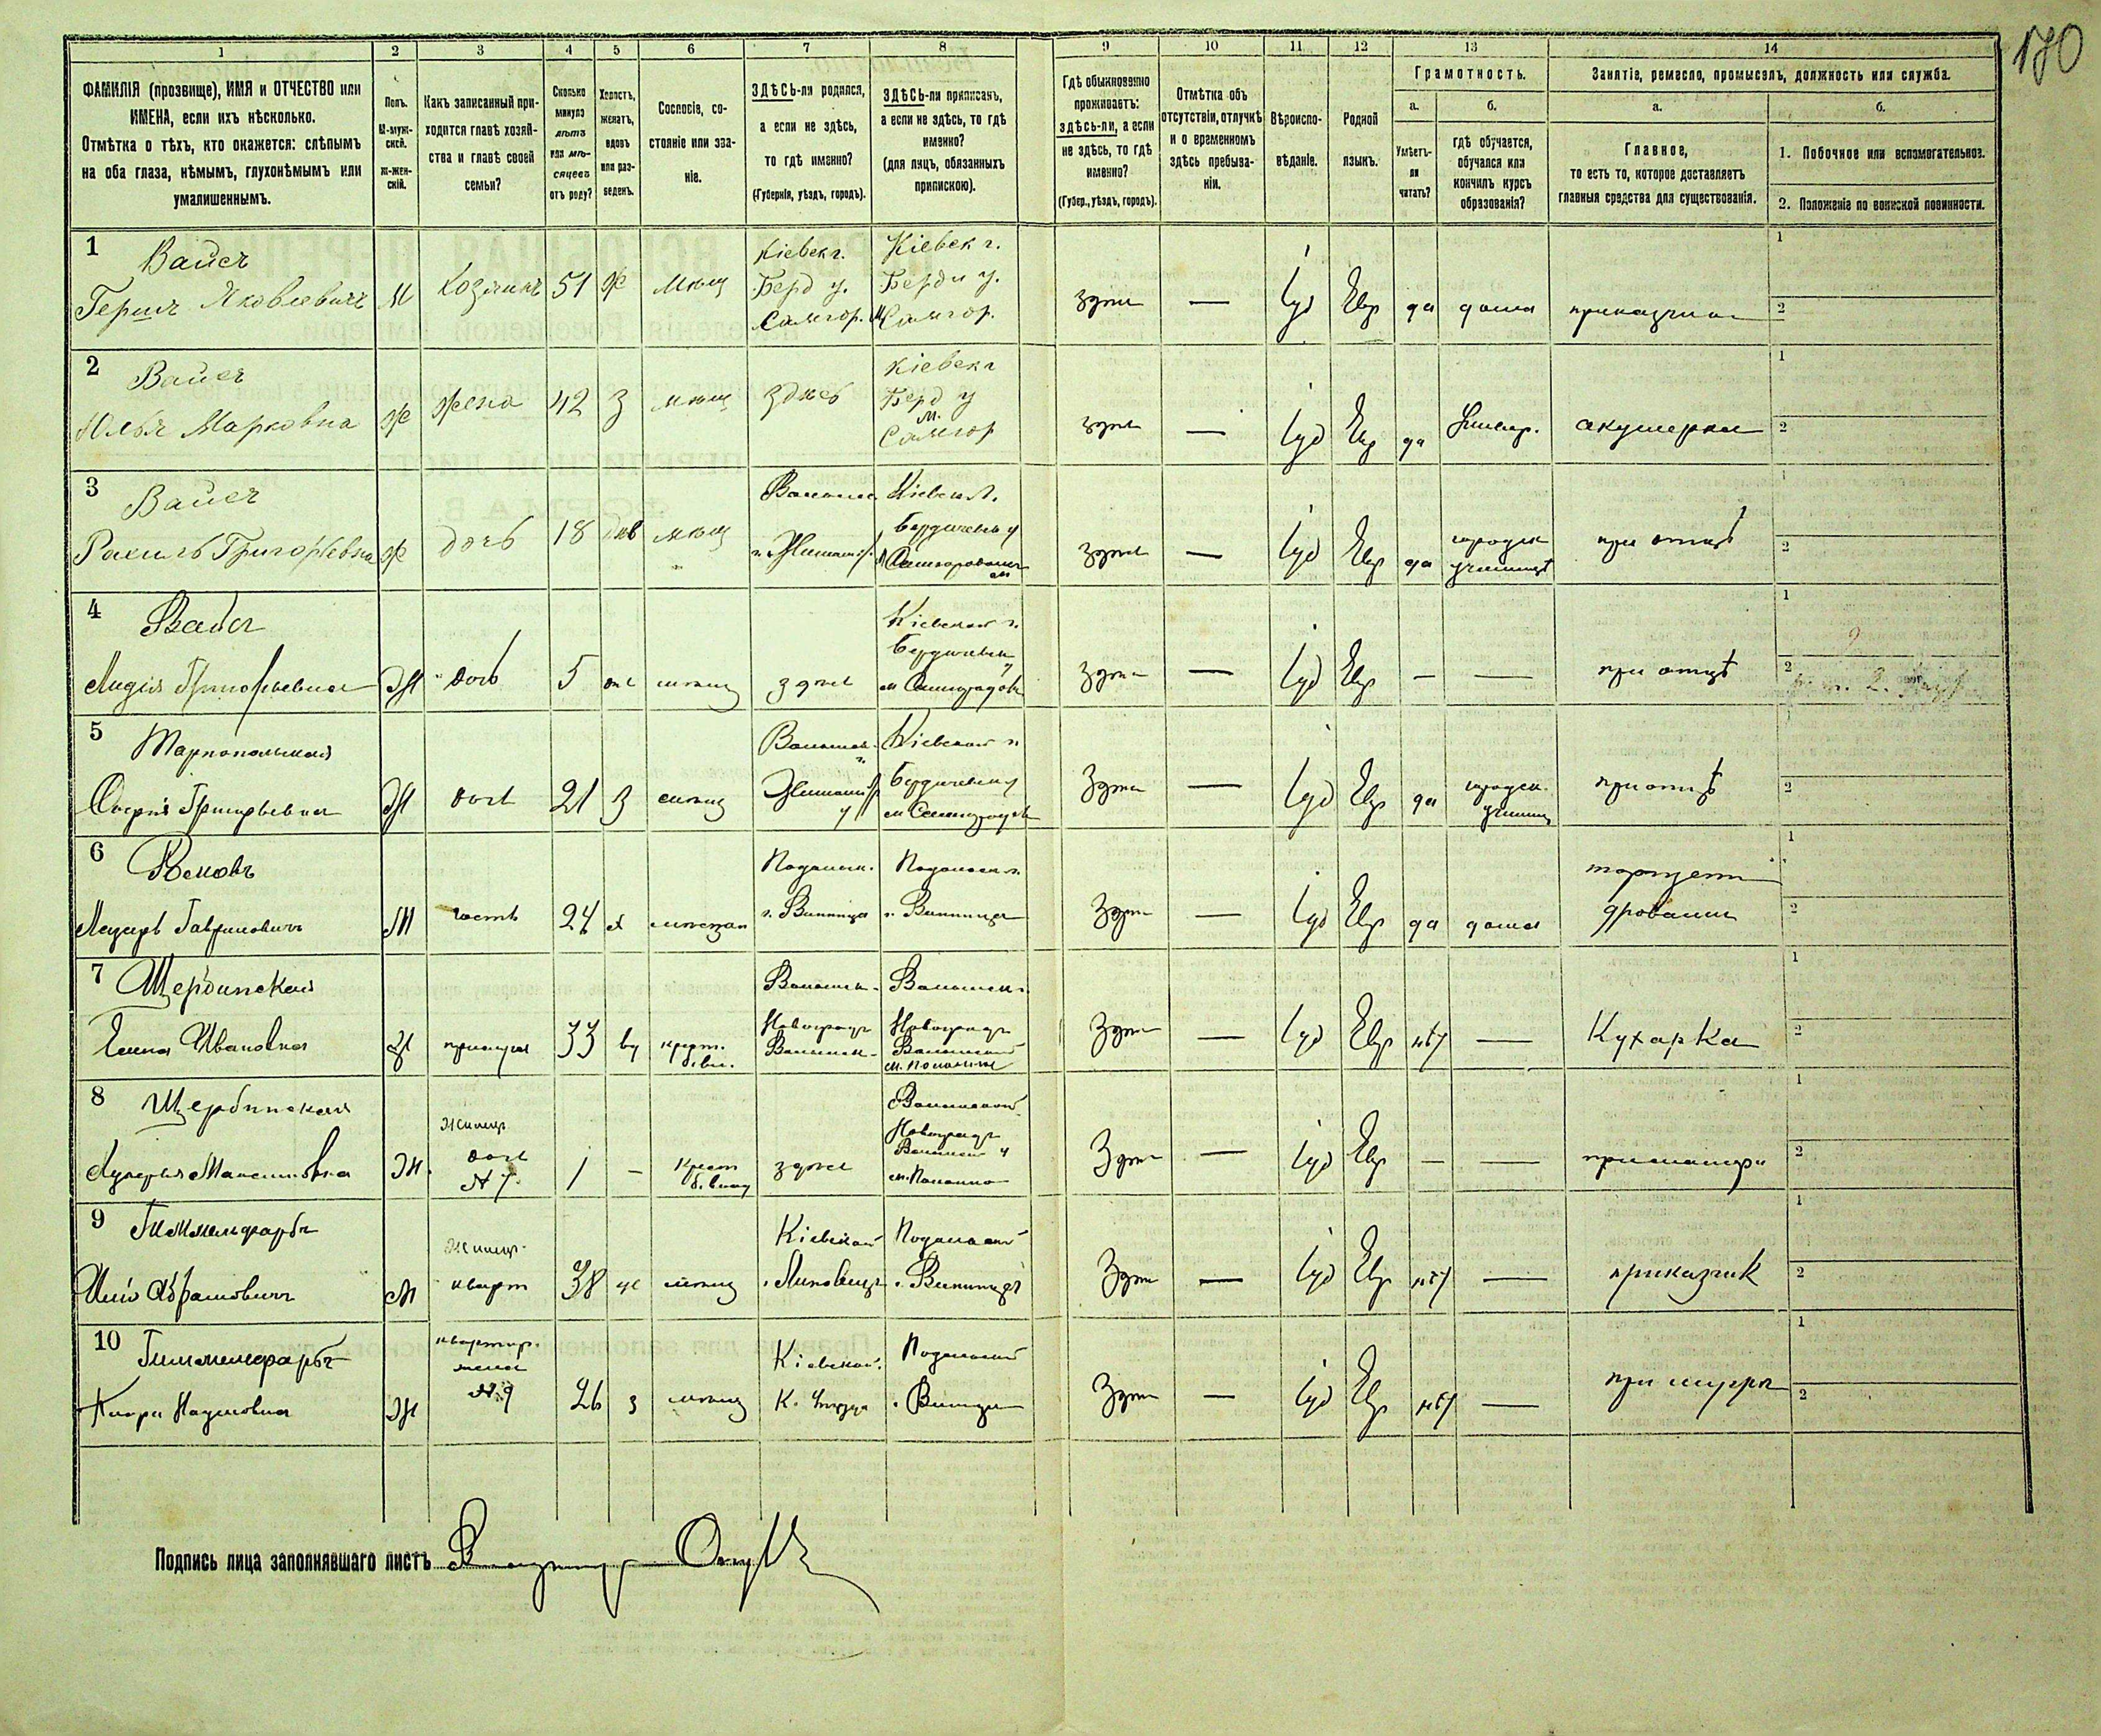 170
1
2
3
4
5
6
7
8
9
10
11
12
13
14
ФАМИЛІЯ (прозвище), ИМЯ и ОТЧЕСТВО или
ИМЕНА, если ихъ нѣсколько.
Отмѣтка о тѣхъ, кто окажется: слѣпымъ
на оба глаза, нѣмымъ, глухонѣмымъ или
умалишеннымъ.
Полъ.
М-муж-
ской.
Ж-жен-
скій.
Какъ записанный при-
ходится главѣ хозяй-
ства и главѣ своей
семьи?
Сколько
минуло
лѣтъ
или мѣ-
сяцевъ
отъ роду?
Холостъ,
женатъ,
вдовъ
или раз-
веденъ.
Сословіе, со-
стояніе или зва-
ніе.
ЗДѢСЬ-ли родился,
а если не здѣсь,
то гдѣ именно?
(Губернія, уѣздъ, городъ).
ЗДѢСЬ-ли приписанъ,
а если не здѣсь, то гдѣ
именно?
(для лицъ, обязанныхъ
припискою).
Гдѣ обыкновенно
проживаетъ:
здѣсь-ли, а если
не здѣсь, то гдѣ
именно?
(Губер., уѣздъ, городъ).
Отмѣтка объ
отсутствіи, отлучкѣ
и о временномъ
здѣсь пребыва-
ніи.
Вѣроиспо-
вѣданіе.
Родной
языкъ.
Грамотность.
а.
Умѣетъ-
ли
читать?
б.
гдѣ обучается,
обучался или
кончилъ курсъ
образованія?
Занятіе, ремесло, промыселъ, должность или служба.
а.
Главное,
то есть то, которое доставляетъ
главныя средства для существованія.
б.
1. Побочное или вспомогательное.
2. Положеніе по воинской повинности.
1
Вайсъ
Гершъ Яковлевичъ
М
Хозяинъ
51
Ж
мѣщ
Кіевск г.
Берд у.
м Самгор.
Кіевск г.
Берди у.
Самгор.
здѣсь
—
Іуд
Евр
да
дома
1
2
2
Вайсъ
Юлья Марковна
Ж
жена
42
З
мѣщ
здѣсь
Кіевск г
Берд у
м.
Самгор
здѣсь
—
Іуд
Евр
да
акушерка
1
2
3
Вайсъ
Рахиль Григорьевна
Ж
дочь
18
дѣв
мѣщ
Бердичевск у
здѣсь
—
Іуд
Евр
да
городск
училищѣ
при отцѣ
1
2
4
Вайсъ
Лидія Григорьевна
Ж
дочь
5
здѣсь
Кіевской г.
здѣсь
—
Іуд
Евр
—
—
при отцѣ
1
2
5
Тарнопольская
Софія Григорьевна
Ж
дочь
21
З
Кіевской г
Бердичевск у
здѣсь
—
Іуд
Евр
да
городск.
училищ
при отцѣ
2
6
Лазарь Гавриловичъ
М
гость
24
х
мѣщан
Подольск.
г. Винница
Подольск г.
г. Винница
здѣсь
—
Іуд
Евр
да
дома
торгуетъ
дровами
1
2
7
Щербинская
Ивановна
Ж
прислуга
33
вд
Волынск.
Новоградъ
Волынск.
Волынск.
Новоградъ
Волынской
здѣсь
—
Іуд
Евр
нѣт
—
Кухарка
1
2
8
Щербинская
Ж.
дочь
№ 7
1
—
здѣсь
Волынской
Новоградъ
Волынск у
м. Полонно
здѣсь
—
Іуд
Евр
—
—
при матери
1
2
9
Гиммельфарбъ
Абрамовичъ
М
кварт
38
ж
мѣщ
Кіевской
г. Липовецъ
Подольской
г. Винница
здѣсь
—
Іуд
Евр
нѣт
—
приказчик
1
2
10
Гиммельфарбъ
Наумовна
Ж
квартир.
жена
№ 9
26
з
мѣщ
Кіевской.
Подольской
г. Винница
здѣсь
—
Іуд
Евр
нѣт
—
при мужѣ
1
2
Подпись лица заполнявшаго листъ